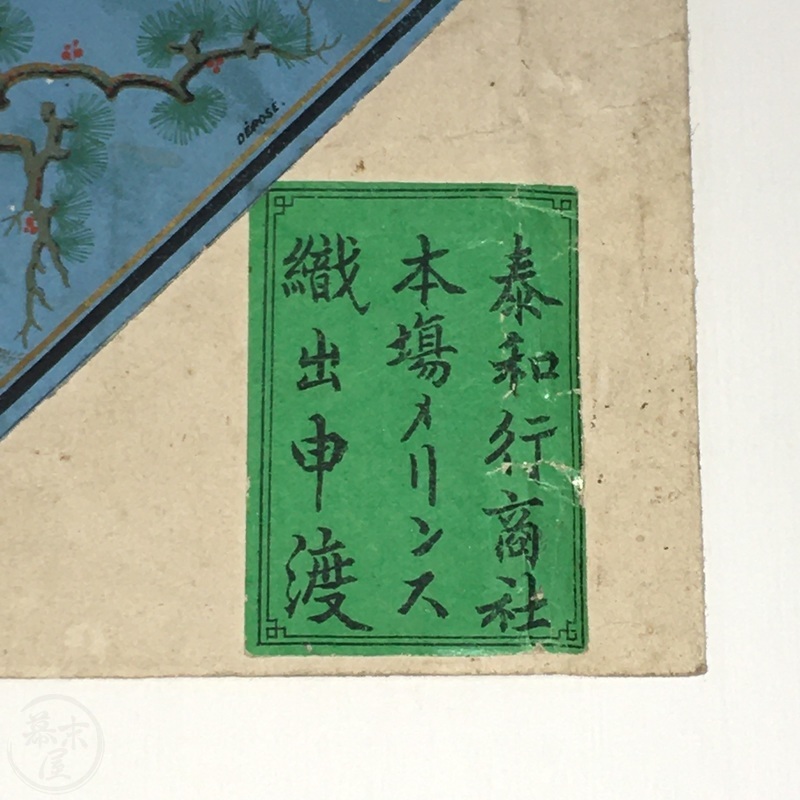 DÉROSE.
泰和行商社
本塲メリンス
織出申渡
幕末屋